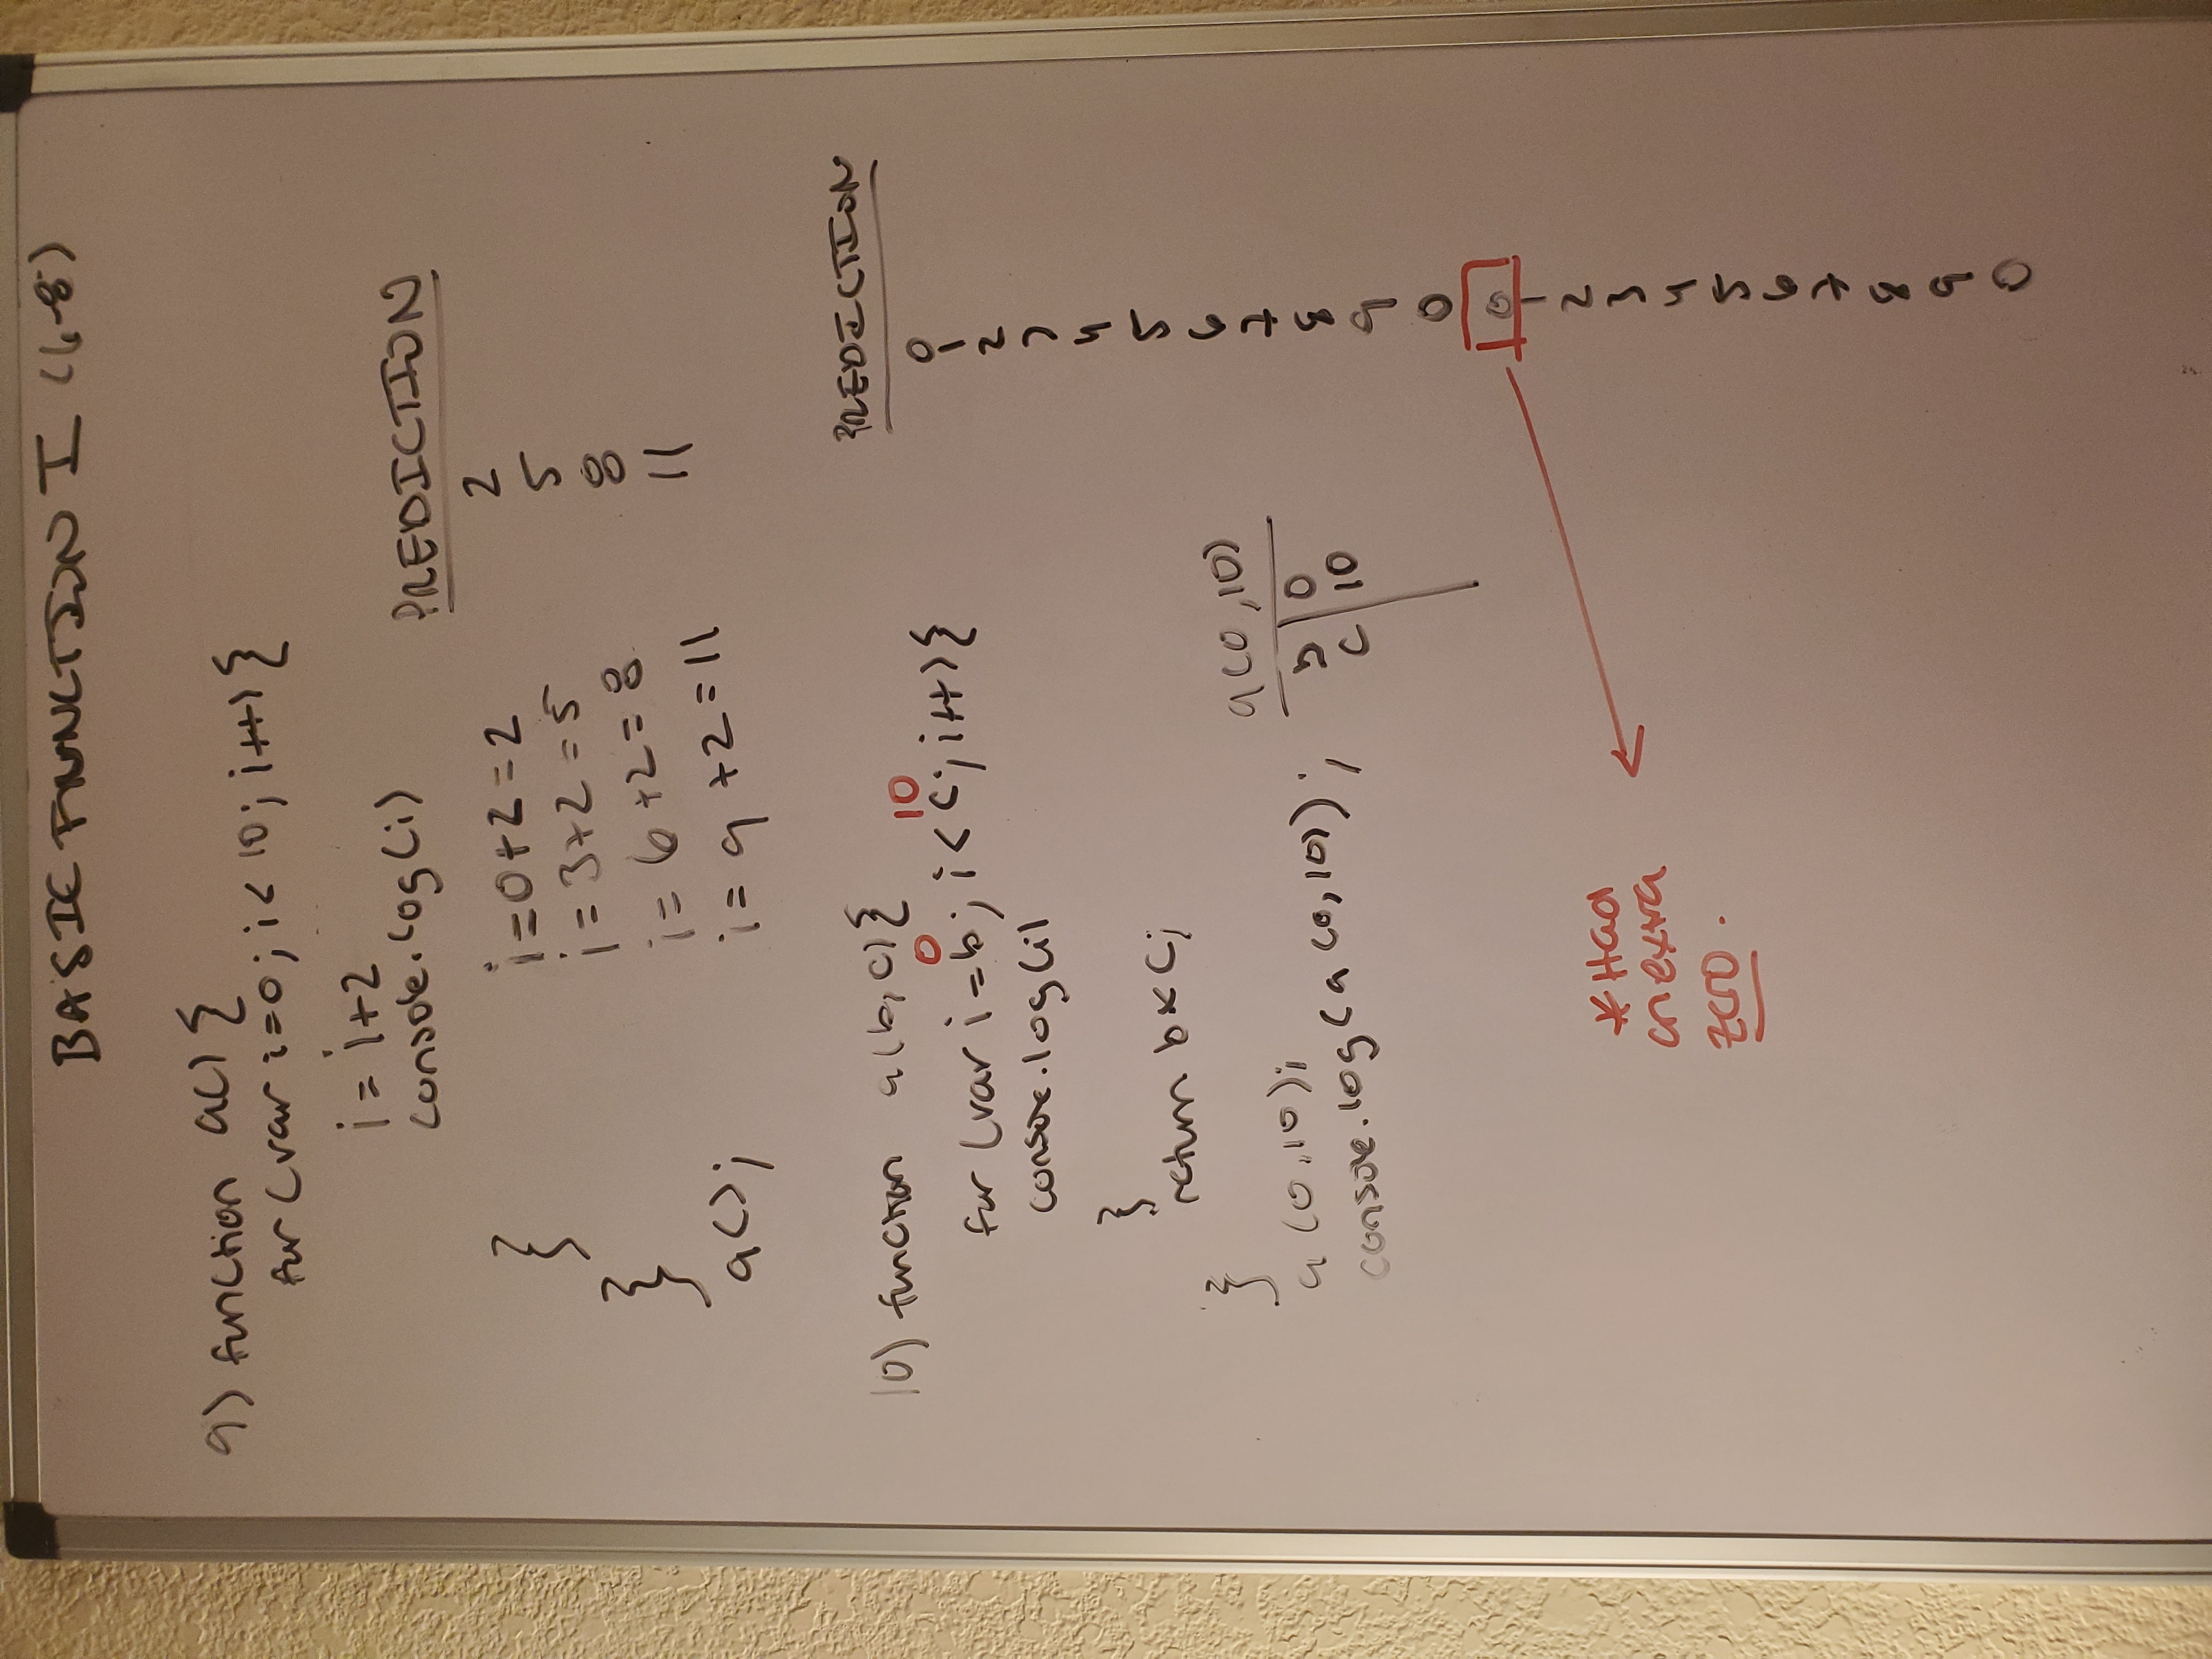 BASIC FUNNCTION I (6-8)
9) function a() {
for (var i=0; i< 10; i++) {
i = i+2
console.log(i)
}
}
a();
i=0+2=2
i=3+2=5
i=6+2=8
i=9+2=11
PREDICTION
2
5
8
11
10) function a(b,c) {
0 10
for (var i=b; i<c; i++) {
console.log(i)
}
return b*c;
}
a(0,10);
console.log(a(0,10));
a(0,10)
b 0
c 10
PREDICTION
0
1
2
3
4
5
6
7
8
9
0
0
1
2
3
4
5
6
7
8
9
0
*Had
an extra
zero.